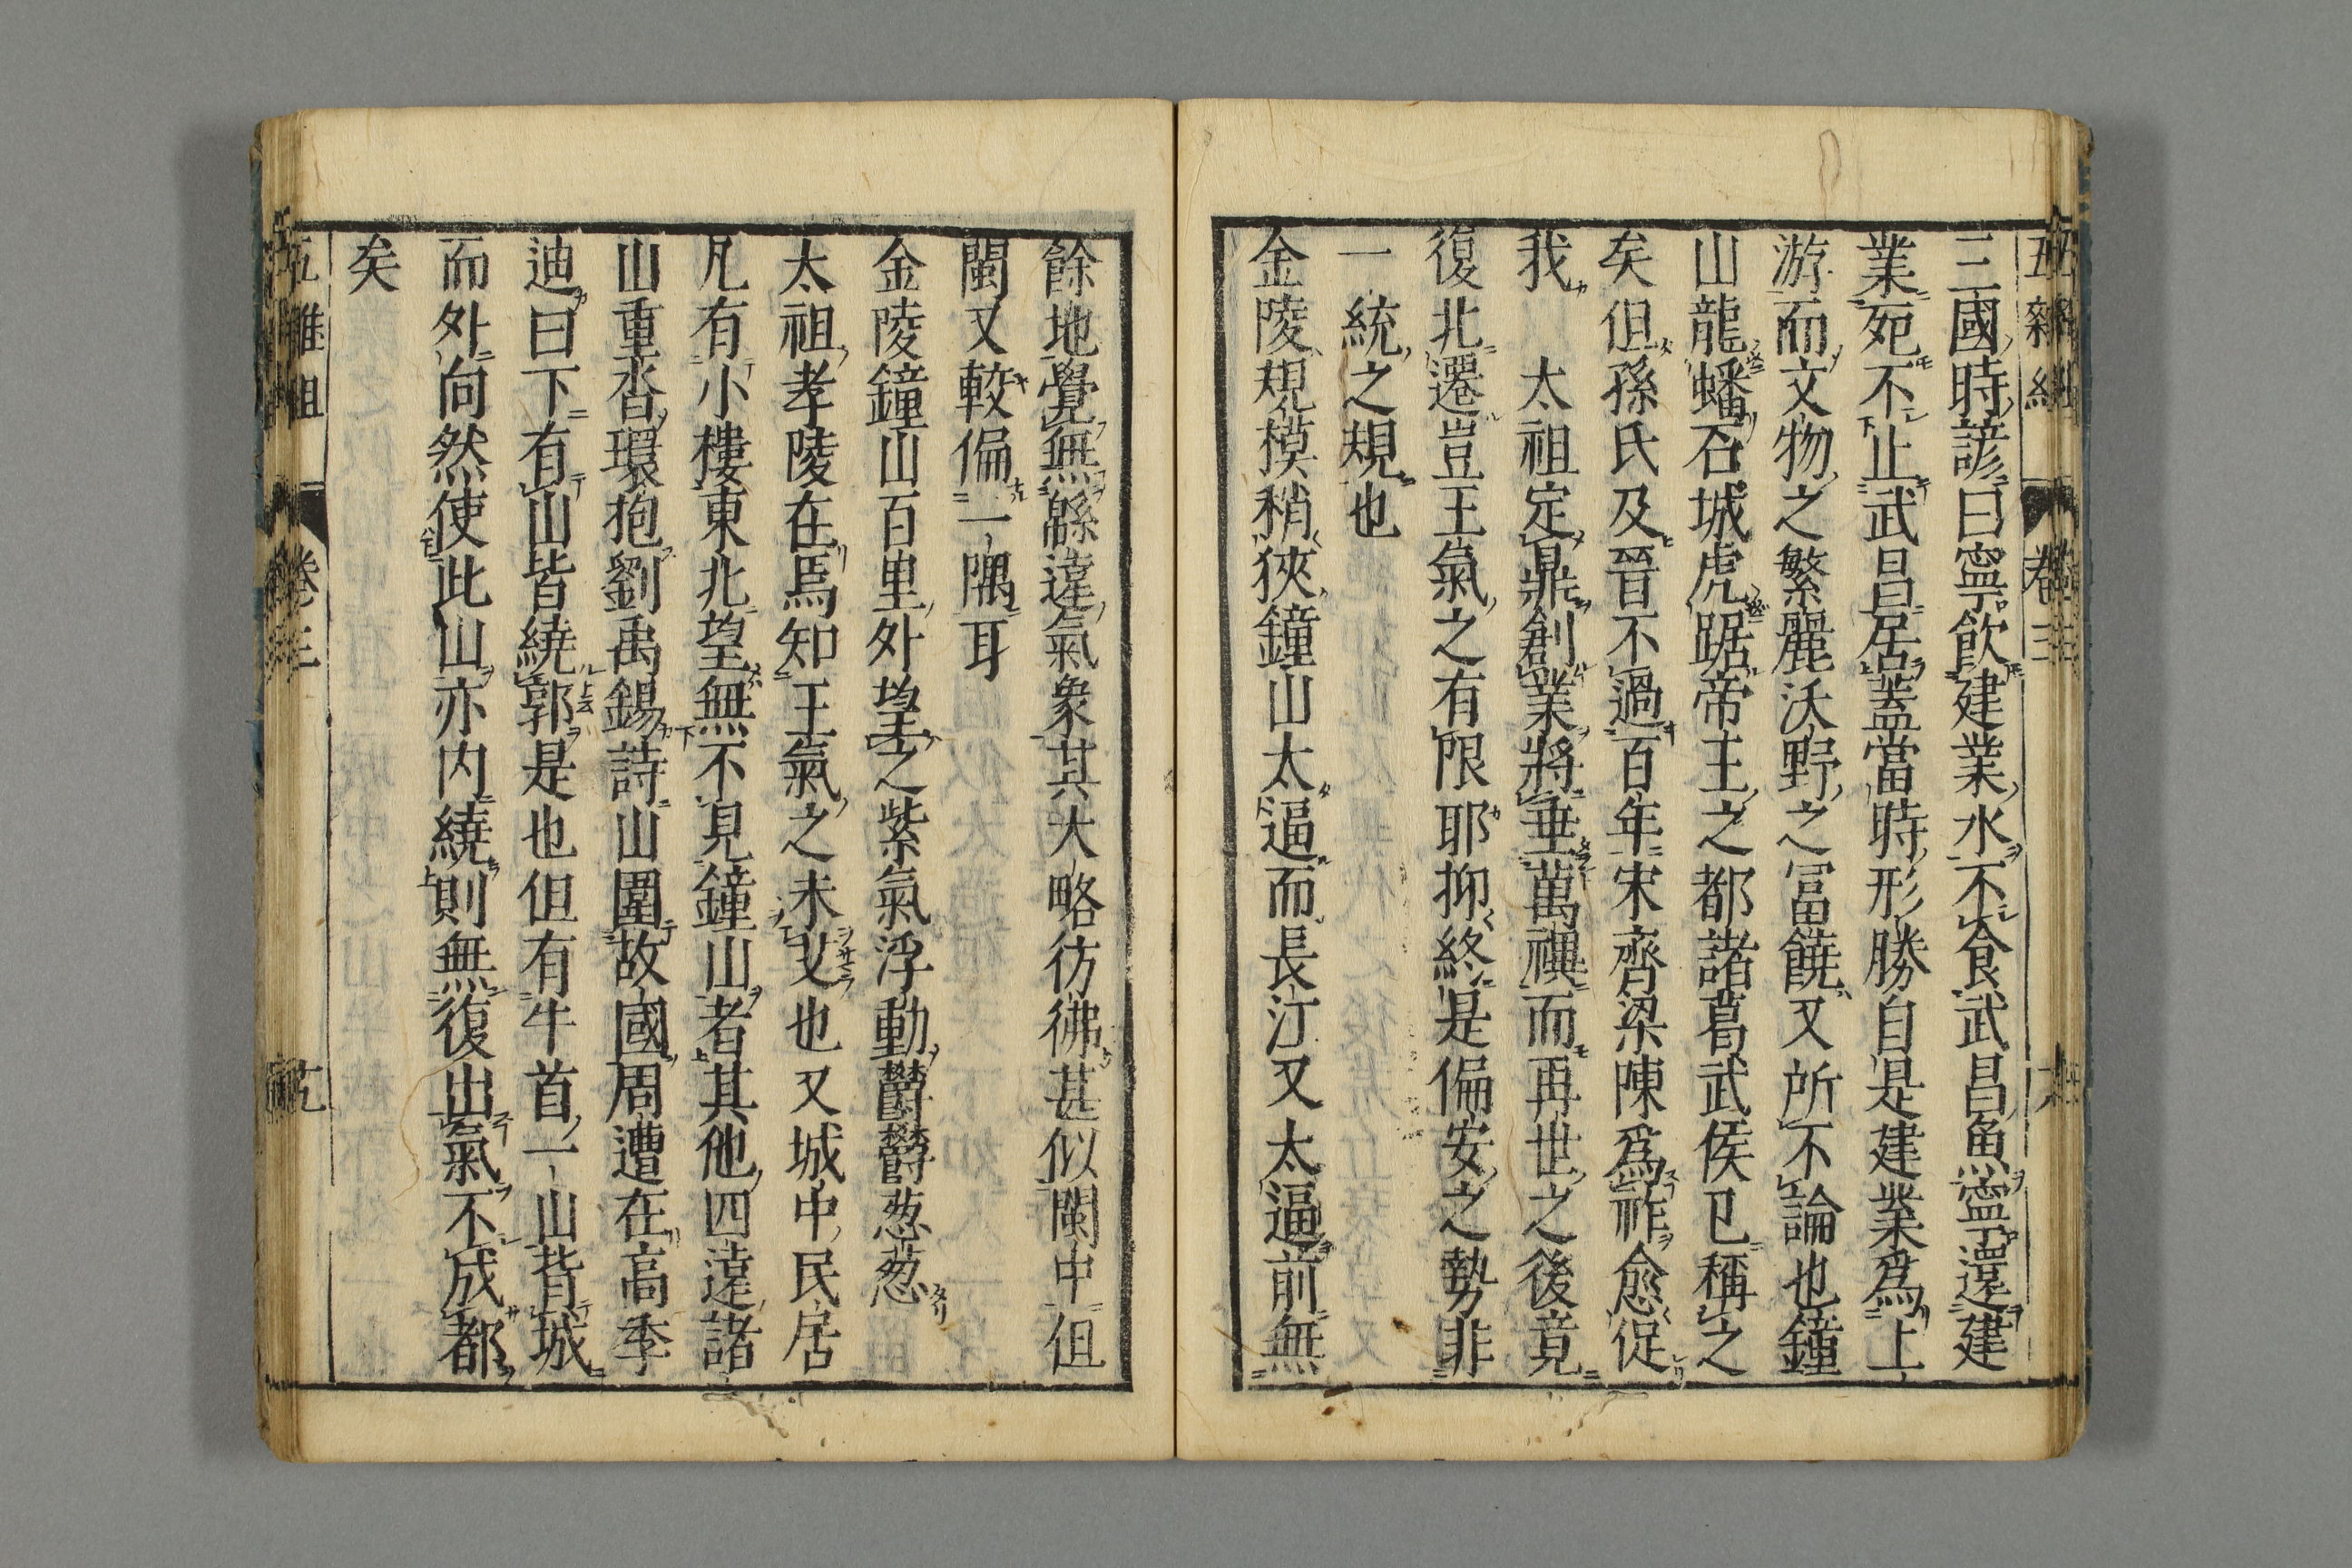 五雜組 卷三
三國時諺曰寧飲建業水不食武昌魚寧還建
業死不止武昌居蓋當時形勝自是建業爲上
游而文物之繁麗沃野之冨饒又所不論也鐘
山龍蟠石城虎踞帝王之都諸葛武侯已稱之
矣但孫氏及晉不過百年宋齊梁陳爲祚愈促
我 太祖定鼎創業將垂萬禩而再世之後竟
復北遷豈王氣之有限耶抑終是偏安之勢非
一統之規也
金陵規模稍狹鐘山太逼而長江又太逼前無
餘地覺無緜遠氣象其大略彷彿甚似閩中但
閩又較偏一隅耳
金陵鐘山百里外望之紫氣浮動鬱鬱葱葱
太祖孝陵在焉知王氣之未艾也又城中民居
凡有小樓東北望無不見鐘山者其他四遠諸
山重沓環抱劉禹錫詩山圍故國周遭在高季
迪曰下有山皆繞郭是也但有牛首一山背城
而外向然使此山亦内繞則無復出氣不成都
矣
五雜組 卷三